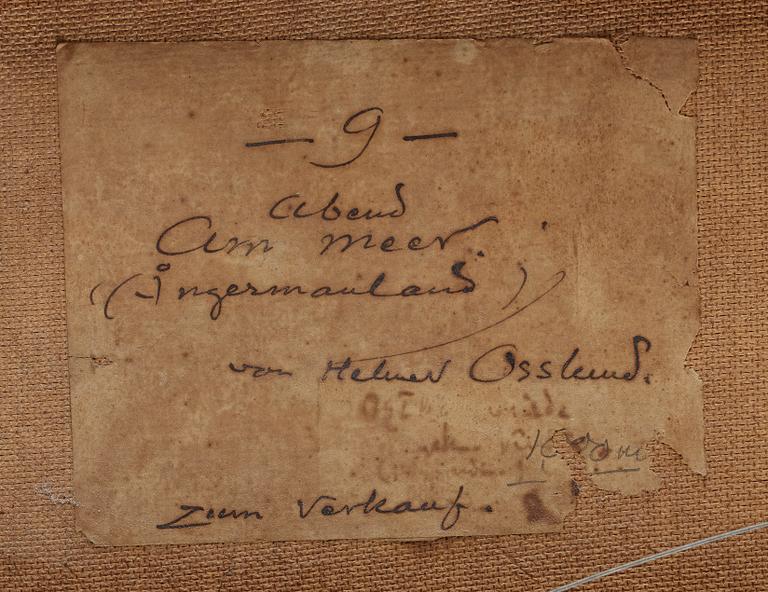 — 9 —
Abend
Am Meer.
(Ångermanland)
von Helmer Osslund.
Zum Verkauf.